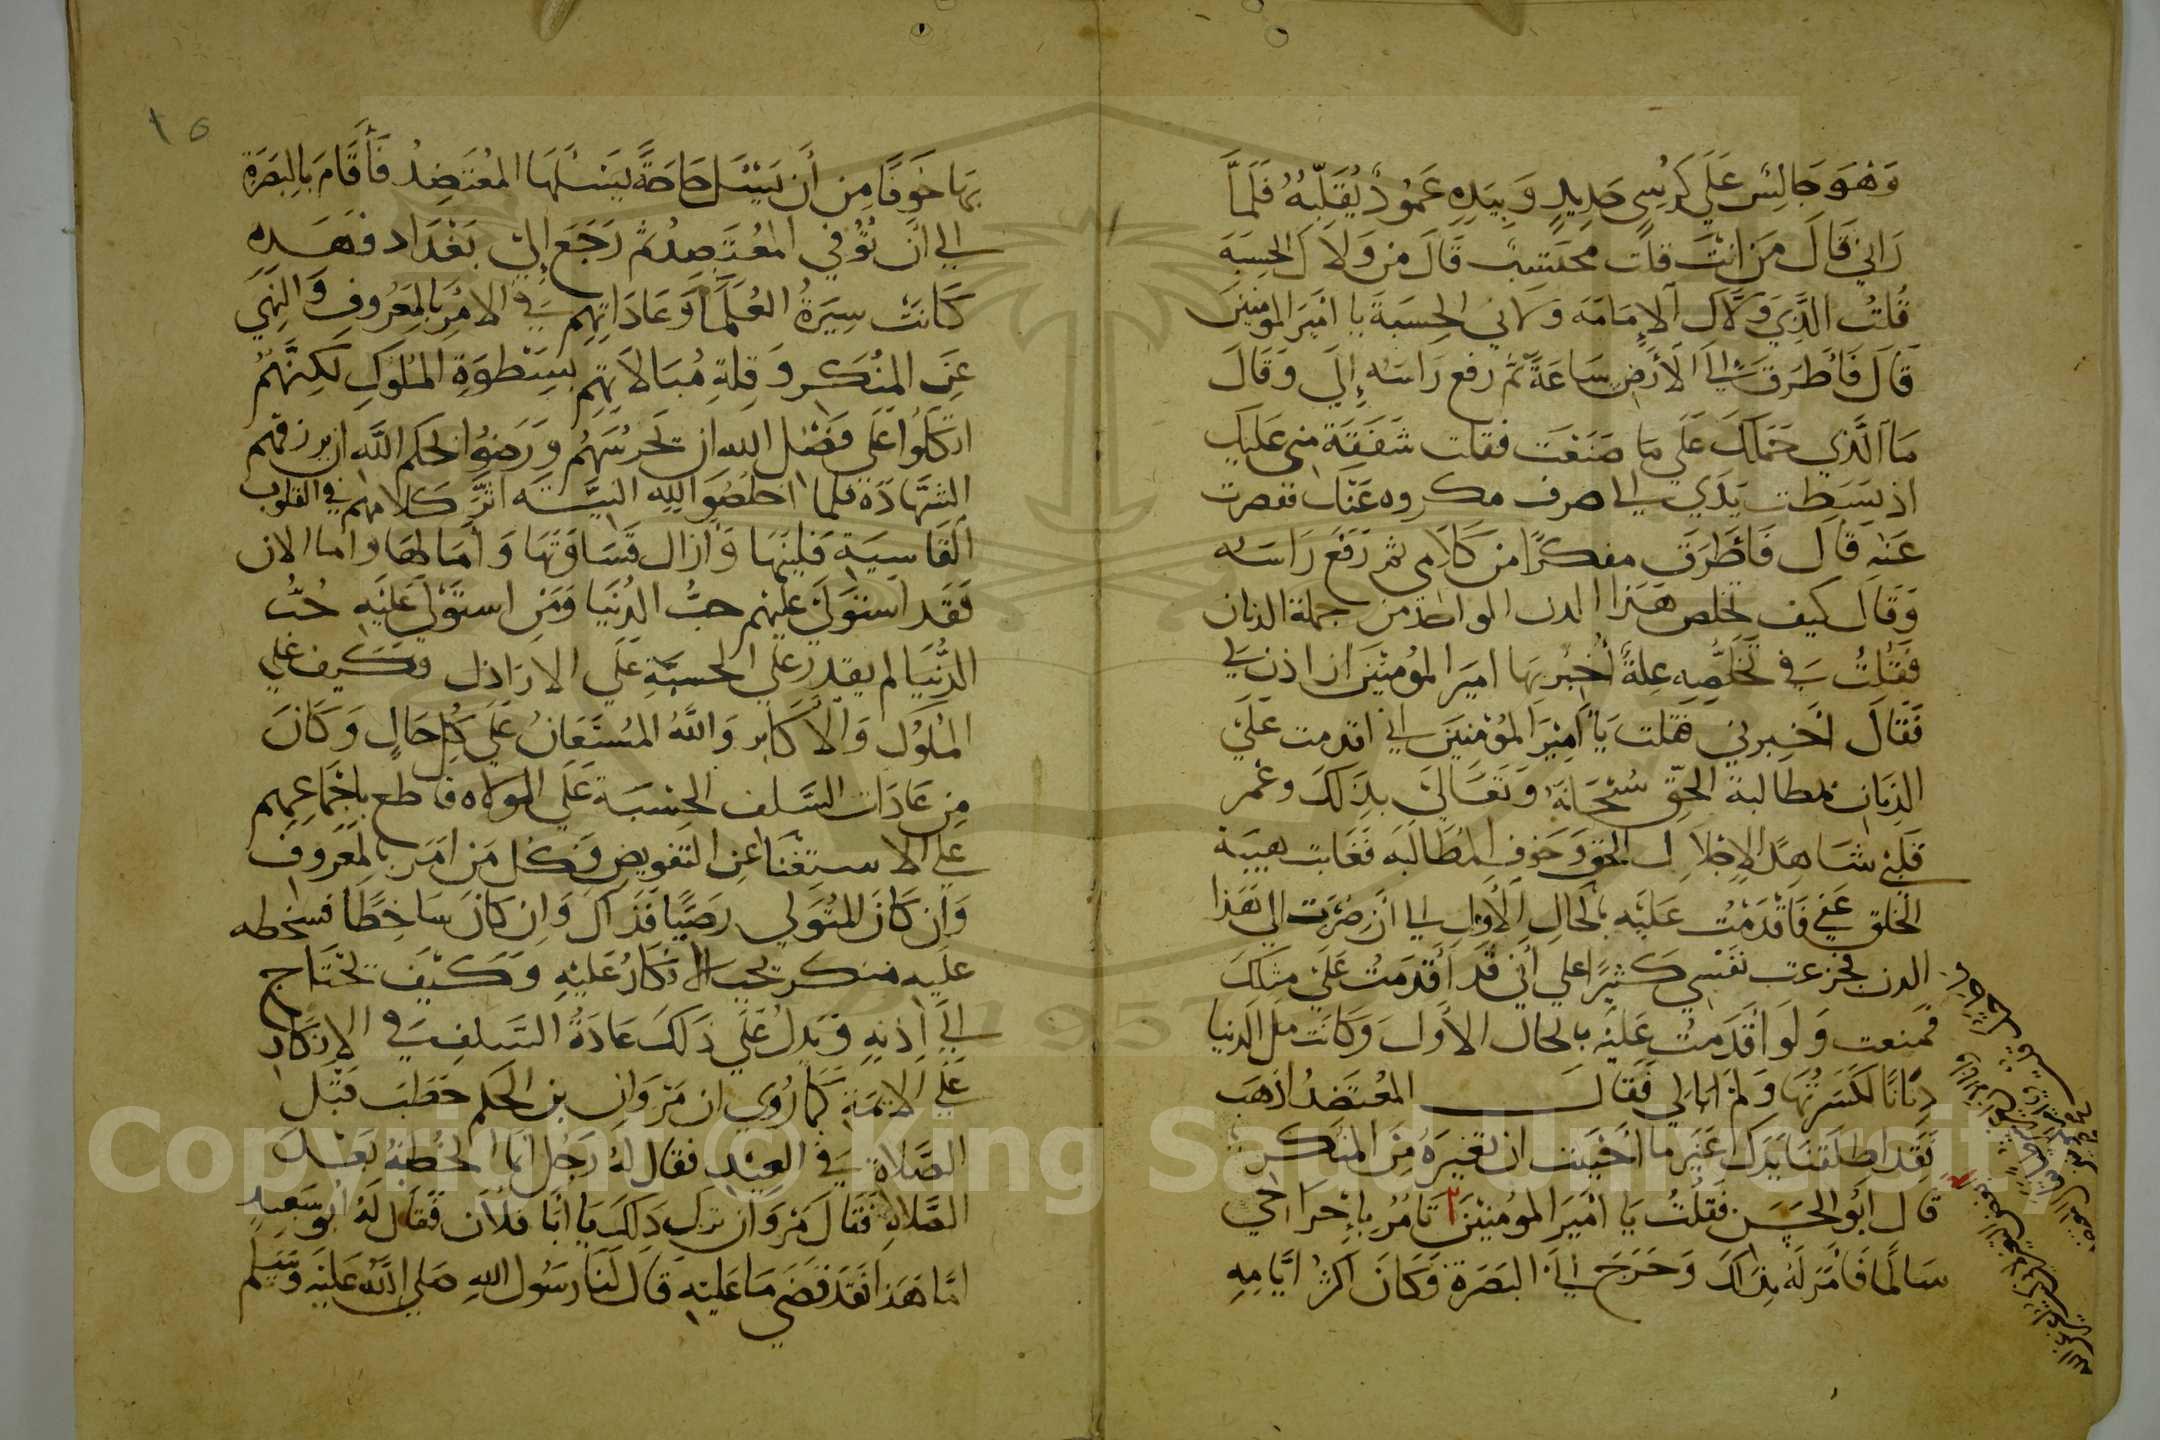 وَهْوَ جَالِسٌ عَلَي كُرْسِي حَدِيدٍ وَبِيَدِهِ عَمُودٌ يُقَلِّبُهُ فَلَمَّا
رَاني قَالَ مَن انتَ قلت محتسِب قَالَ مَن وَلاكَ الحِسبَةِ
قُلتُ الَّذِي وَلَّاكَ الإِمَامَه وَلاني الحِسبَةَ يا امَيرَ المومنين
قَالَ فَأَطْرَقَ إلى الأَرضِ سَاعَةً ثم رفع رَاسَه إِلَى وَقَالَ
مَا الَّذي حَمَلَكَ عَلَي مَا صَنَعْتَ فقلت شَفَقَةً مني عَلَيكَ
اذ بَسَطت يَدَي الي صرف مكروه عَنْكَ فقصرت
عَنه قَالَ فَأَطْرَقَ مفكرًا من كَلامي ثم رَفَعَ رَاسَه
وَقَالَ كيف تخلص هَذا الدن الواحد من جملة الدنان
فَقُلتُ في تخَلصِه عِلةٌ أُخبِرُ بهَا امير المُومنِينَ ان اذن لي
فَقَالَ اخبرني فقلت يَا أَمِيْرَ المُؤْمِنيَن اني اقدمت عَلَيْ
الدِنَان بمطالبة الحَقِّ سُبْحَانَهُ وَتَعَاليَ بِذَلكَ وغمر
قَلبي شَاهِد الإِجْلَالِ للحق وَخوفِ المُطَالَبَه فَغَابت هيبَة
الخلق عَني فَاقْدَمْتُ عَلَيْه بالحَالِ الأَولِ الي أَن صِرتُ الي هَذا
الدن فجزعت نفسي كثيرًا علي أني قَد أَقدَمتُ عَلَيْ مِثلكَ
فمنعت وَلَو أَقَدَمتُ عَلَيْه بالحَال الأوَل وَكَانَت مل الدنيا
دِنَانًا لكَسَرتُهَا وَلم ابالي فقَالَ المُعتَضدُ اذهَب
فَقد اطلقنَا يَدَكَ غَيّر مَا احَببت ان تغيرَهُ مِن المنكر
قَالَ أبُو الحَسَنِ فَقُلتُ يَا امَيرَ المومنينَ تَامُرُ بِإخْرَاجي
سَالمًا فَأمَرَ لَهُ بِذَاكَ وَخَرَجَ اليَ البَصَرَة فَكَانَ أكثَرُ ايَّامِهِ
بهَا خَوفًا مِن أَن يَسْئَل حَاجَةً يَسْئلهَا المُعتَضِدُ فَأَقَامَ بِالبَصَرَة
الي ان تُوُفي المُعتَضِد ثم رَجَع إليَ بَغدَاد فهَذه
كَانت سِيَرةُ العُلَمَاَ وَعَادَاتِهِم فِي الأمْرِ بالمَعرُوفِ وَالنهَي
عَن المنُكَرِ وَقلةِ مُبَالاَتِهِم بِسَطْوَةِ المُلُوكِ لَكِنَّهُم
اتكَلُوا عَلَي فَضْل الله ان يَحرسَهُم وَرَضُوا بحكم اللَّه ان يرزقهم
الشهَادَة فلما اخلصُوا للِه النِيَّة اثرَ كَلامهم في القلوب
القَاسِيَةِ فَلينَهَا وَأزَال قَسَاوَتَهَا وَأمَالهَا واما الان
فَقَد اسَتَولَيَ عَلَيهم حبُّ الدُنيَا وَمَن استَوليَ عَلَيَهِ حُبُّ
الدُّنيَا لم يقدِر عَلَي الحسبَةِ عَلَي الارَاذل وكيف علي
المُلُوك وَالاَكَابر وَاللَّهُ المُستَعَانُ عَلَي كُلِ حَالٍ وَكَانَ
مِن عَادَات السَّلف الحِسْبَة عَلَي الولاه قاطع بإجْمَاعِهِم
علي الاستِغْنَا عِن التَفويض وَكُل مَن امَر بالمَعَروُفِ
وَان كَانَ المُتَوَلي رَضيًا فذَاكَ وَاِن كَانَ سَاخِطًا فسخطه
عليه منكر يجب الانكَارُ عَليْهِ وَكَيْفَ تَحْتَاج
اليَ اِذنِهِ وَيَدلُ عَلَي ذَلكَ عَادَةُ السَلفِ فِي الإِنكَارِ
عَلَي الايمَةِ كمَا رُوي ان مَروَان بن الحَكم خَطَبَ قَبْل
الصَّلاةِ فِي العيدِ فقال لهُ رَجُل انما الخُطبَةُ بَعْدَ
الصَّلاةِ فَقَالَ مَرْوَان ترك ذلكَ يَا أبَا فلاَن فقَال لهُ أبو سَعِيدٍ
امَّا هَذا فَقَد قضَي مَا عَليهِ قَالَ لَنَا رَسُول اللهِ صَلي اللَّهُ عَلَيهِ وَسَلم